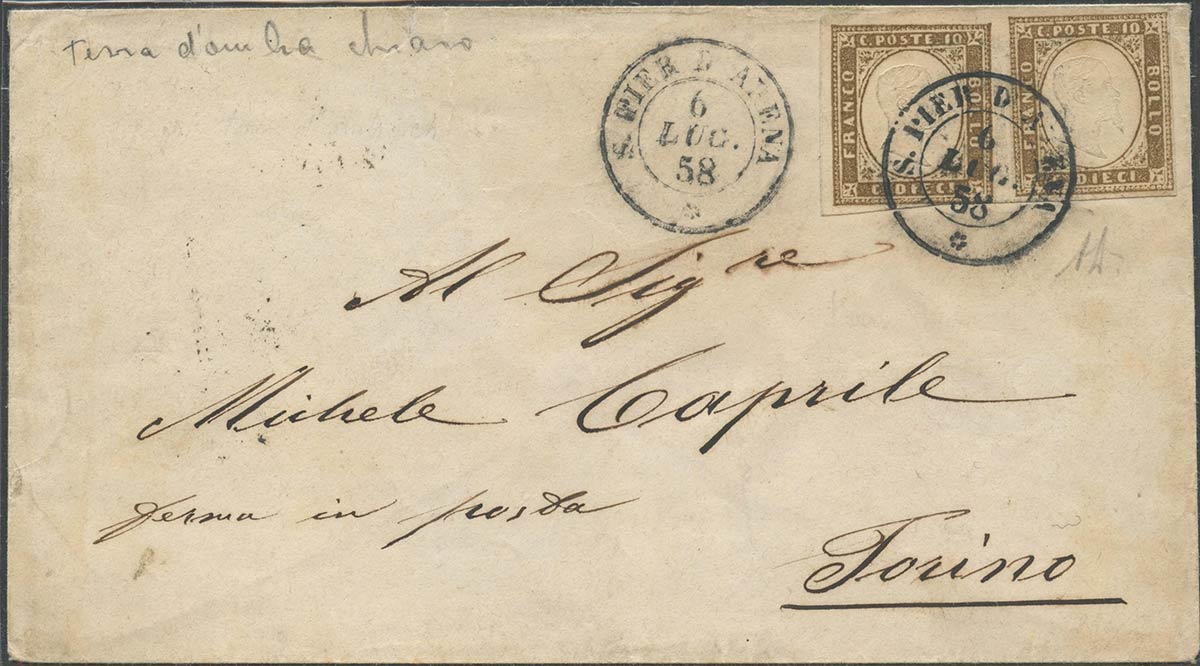 terra d'ombra chiaro
S. PIER D'ARENA
6
LUG.
58
C. POSTE 10
FRANCO
BOLLO
C. DIECI
C. POSTE 10
FRANCO
BOLLO
C. DIECI
S. PIER D'ARENA
6
LUG.
58
Al Sigre
Michele Caprile
ferma in posta
Torino